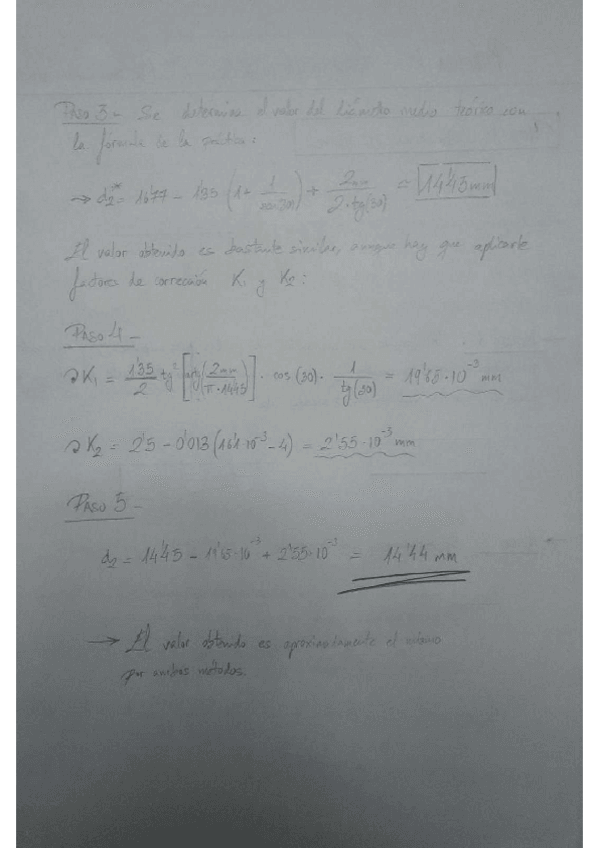 Paso 3 - Se determina el valor del diámetro medio teórico con
la fórmula de la práctica:
→ d₂* = 16'77 - 1'35 (1 + 1/sen(30)) + 2mm/2·tg(30) = 14'45 mm
El valor obtenido es bastante similar, aunque hay que aplicarle
factores de corrección K₁ y K₂:
Paso 4 -
→ K₁ = 1'35/2 tg² [arctg(2mm/π·14'45)] · cos(30) · 1/tg(30) = 19'65·10⁻³ mm
→ K₂ = 2'5 - 0'013 (16'1·10⁻³ - 4) = 2'55·10⁻³ mm
Paso 5 -
d₂ = 14'45 - 19'65·10⁻³ + 2'55·10⁻³ = 14'44 mm
→ El valor obtenido es aproximadamente el mismo
por ambos métodos.